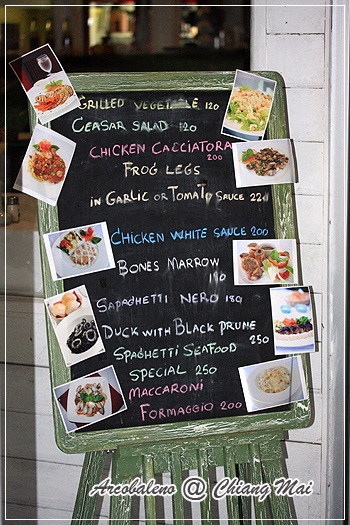 GRILLED VEGETABLE 120
CEASAR SALAD 120
CHICKEN CACCIATORA
200
FROG LEGS
IN GARLIC OR TOMATO SAUCE 220
CHICKEN WHITE SAUCE 200
BONES MARROW
190
SAPAGHETTI NERO 180
DUCK WITH BLACK PRUNE
250
SPAGHETTI SEAFOOD
SPECIAL 250
MACCARONI
FORMAGGIO 200
Arcobaleno @ Chiang Mai